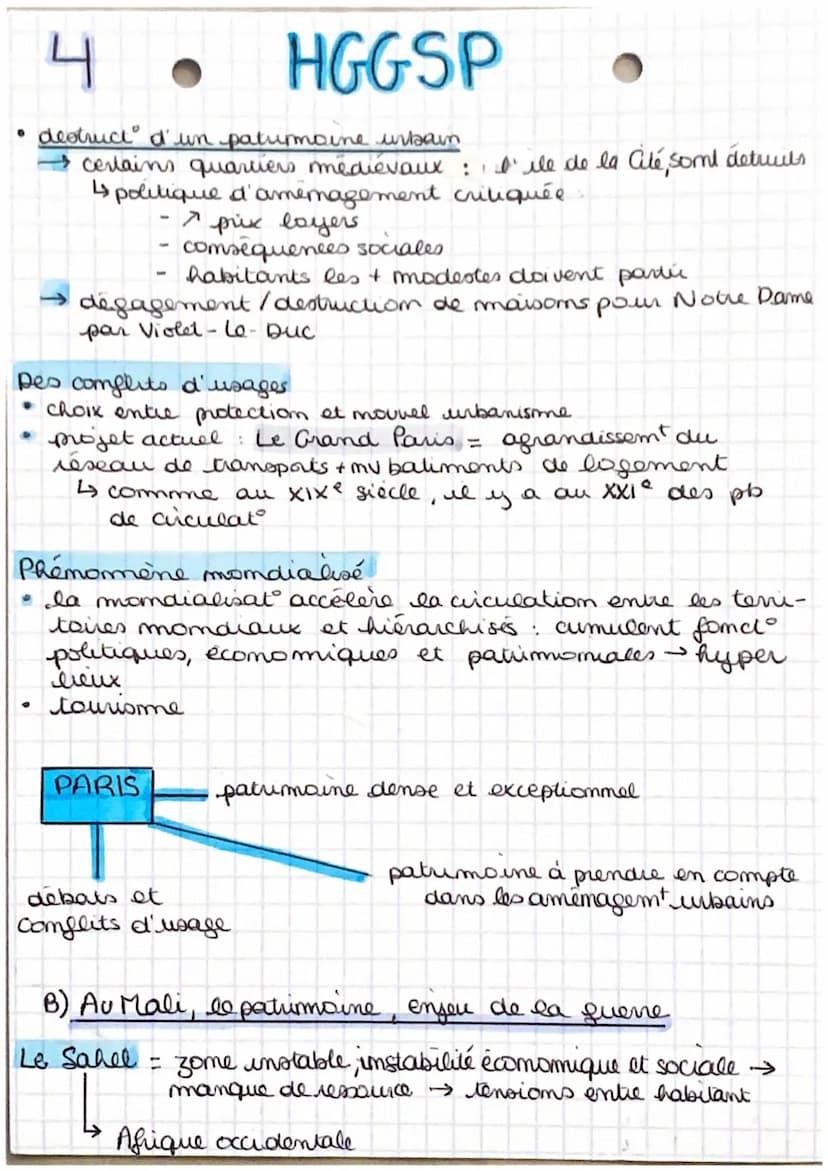 4 HGGSP
• destruct° d'un patrimoine urbain
→ certains quartiers médiévaux : l'île de la Cité, sont détruits
↳ politique d'aménagement critiquée
- ↗ prix loyers
- conséquences sociales
- habitants les + modestes doivent partir
→ dégagement / destruction de maisons pour Notre Dame
par Violet-Le-Duc
Des conflits d'usages
• choix entre protection et nouvel urbanisme
• projet actuel : Le Grand Paris = agrandissemt du
réseau de transports + nv batiments de logement
↳ comme au XIXe siècle, il y a au XXIe des pb
de circulat°
Phénomène mondialisé
• la mondialisat° accélère la circulation entre les terri-
toires mondiaux et hiérarchisés : cumulent fonct°
politiques, économiques et patrimoniales → hyper
lieux
• tourisme
PARIS
patrimoine dense et exceptionnel
patrimoine à prendre en compte
dans les aménagemt urbains
débats et
conflits d'usage
B) Au Mali, le patrimoine, enjeu de la guerre
Le Sahel = zone instable, instabilité économique et sociale →
manque de ressource → tensions entre habitant
↳ Afrique occidentale